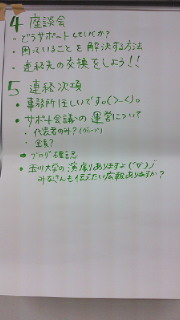 4 座談会
・どうサポートしていくか？
・困っていることを解決する方法
・連絡先の交換をしよう！！
5 連絡次項
・事務所忙しいです。(>_<)。
・サポート会議への運営について
・代表者のみ？(グループ)
・全員？
・ブログ確認
・玉川大学の演劇ありますよ(°∀°)；
みなさんも伝えたい広報ありますか？